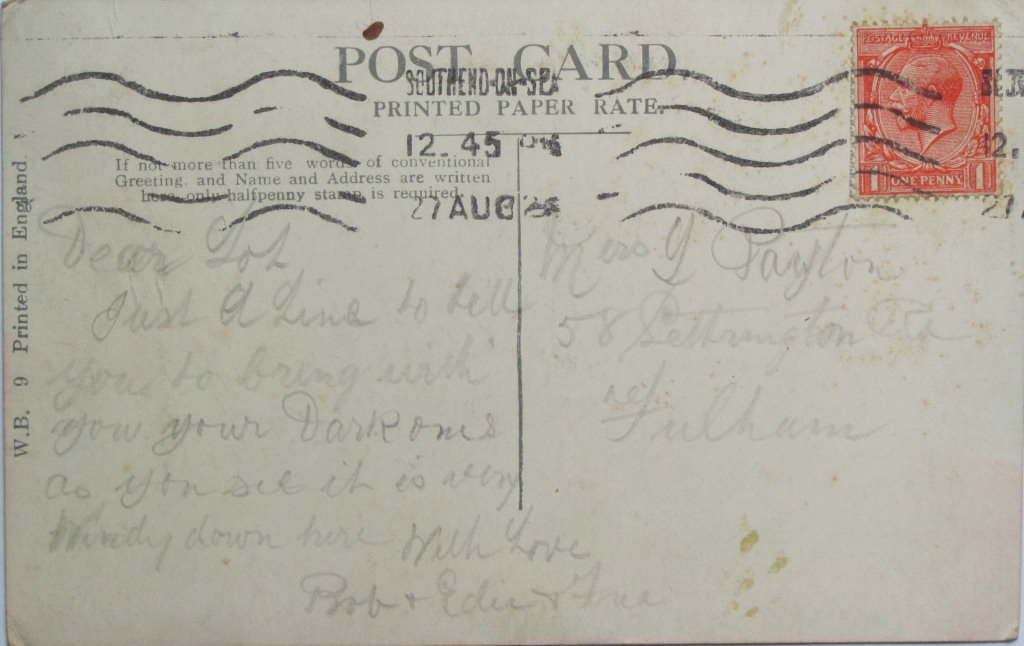 POST CARD
PRINTED PAPER RATE.
SOUTHEND-ON-SEA
12.45 PM
27 AUG
POSTAGE REVENUE
1 ONE PENNY 1
12.
If not more than five words of conventional
Greeting, and Name and Address are written
here only halfpenny stamp is required.
W.B. 9 Printed in England.
Dear Lot
Just A Line to tell
you to bring with
you your Dark oms
as you see it is very
Windy down here With Love
Bob & Edie &
Mrs Payton
58 Rd
Fulham